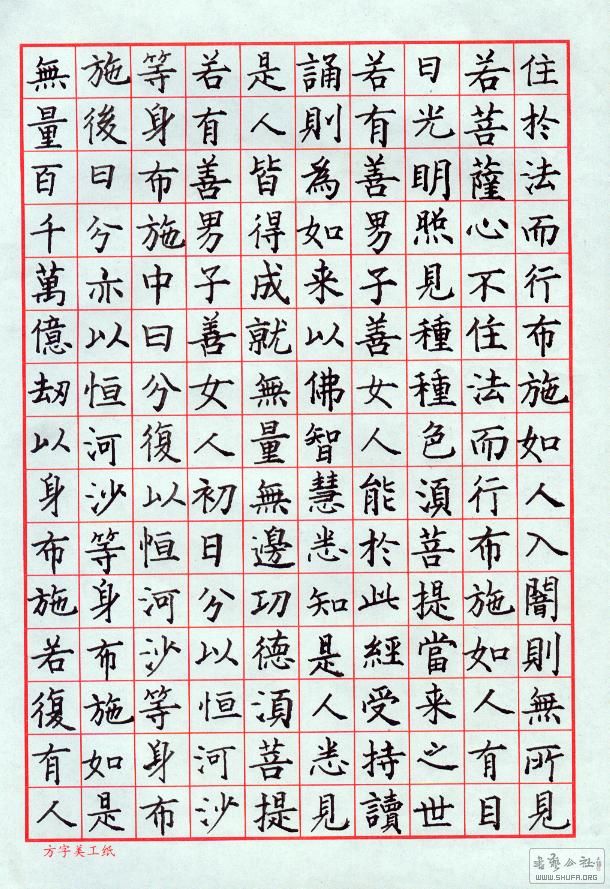 住扵法而行布施如人入闇則無所見
若菩薩心不住法而行布施如人有目
日光明照見種種色湏菩提當来之世
若有善男子善女人能扵此經受持讀
誦則為如来以佛智慧悉知是人悉見
是人皆得成就無量無邊功德湏菩提
若有善男子善女人初日分以恒河沙
等身布施中日分復以恒河沙等身布
施後日分亦以恒河沙等身布施如是
無量百千萬億劫以身布施若復有人
方字美工纸
WWW.SHUFA.ORG